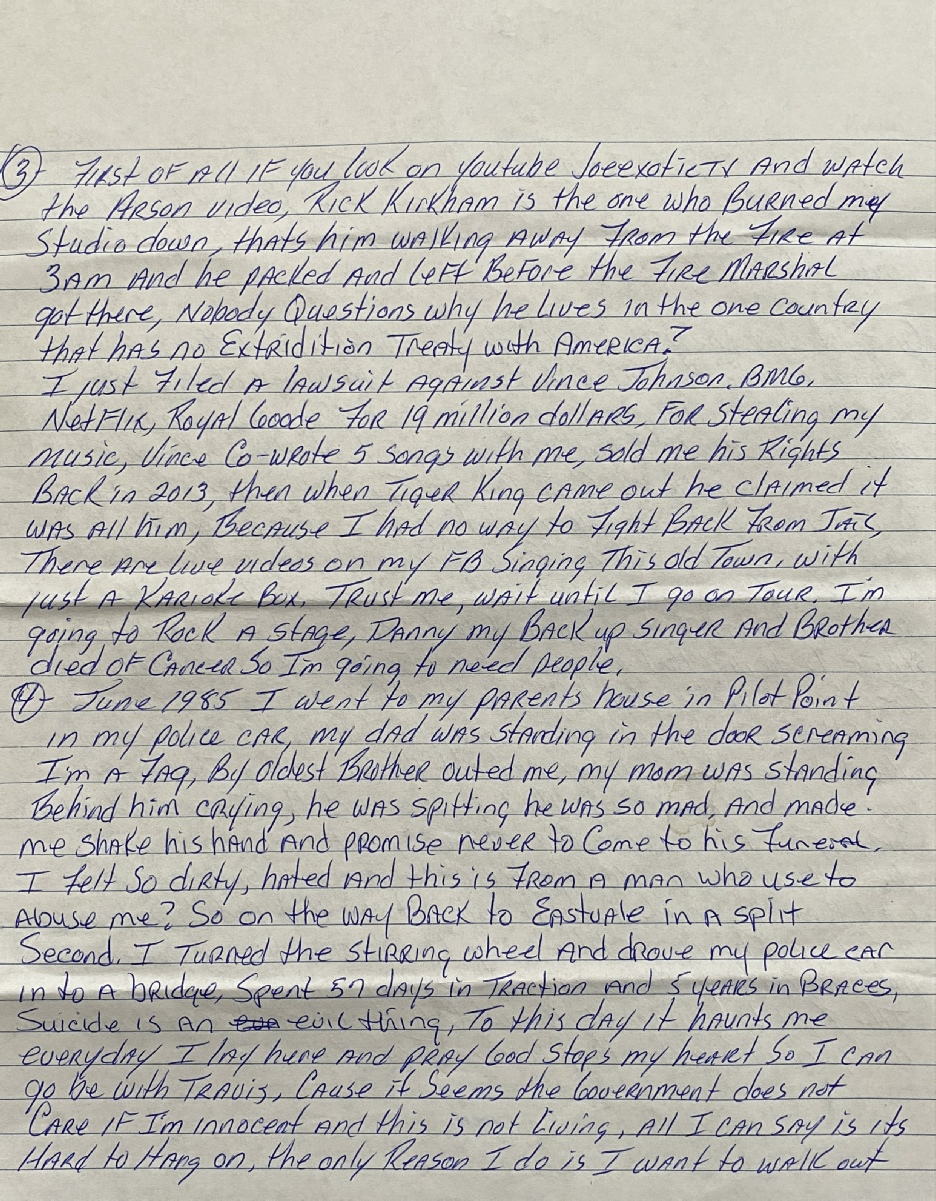 ③ First of all if you look on youtube JoeexoticTV and watch
the Arson video, Rick Kirkham is the one who Burned my
Studio down, thats him walking away from the fire at
3am and he packed and left Before the fire Marshal
got there, Nobody Questions why he lives in the one country
that has no Extridition Treaty with America?
I just filed a lawsuit against Vince Johnson, BMG,
NetFlix, Royal Goode for 19 million dollars, For stealing my
music, Vince Co-wrote 5 songs with me, sold me his Rights
Back in 2013, then when Tiger King came out he claimed it
was all him, Because I had no way to fight Back from Jail,
There are live videos on my FB Singing This old Town, with
just a Karioke Box. Trust me, wait until I go on Tour. I'm
going to Rock a stage, Danny my Back up singer and Brother
died of Cancer So I'm going to need people.
④ June 1985 I went to my parents house in Pilot Point
in my police car, my dad was standing in the door screaming
I'm a fag, By oldest Brother outed me, my mom was standing
Behind him crying, he was spitting he was so mad, and made
me shake his hand and promise never to Come to his funeral.
I felt so dirty, hated and this is from a man who use to
Abuse me? So on the way Back to Eastvale in a split
Second. I Turned the stirring wheel and drove my police car
in to a bridge, Spent 57 days in Traction and 5 years in Braces,
Suicide is an evil thing, To this day it haunts me
everyday I lay here and pray God stops my heart So I can
go be with Travis, Cause it seems the Government does not
Care if I'm innocent and this is not living, all I can say is its
Hard to Hang on, the only Reason I do is I want to walk out